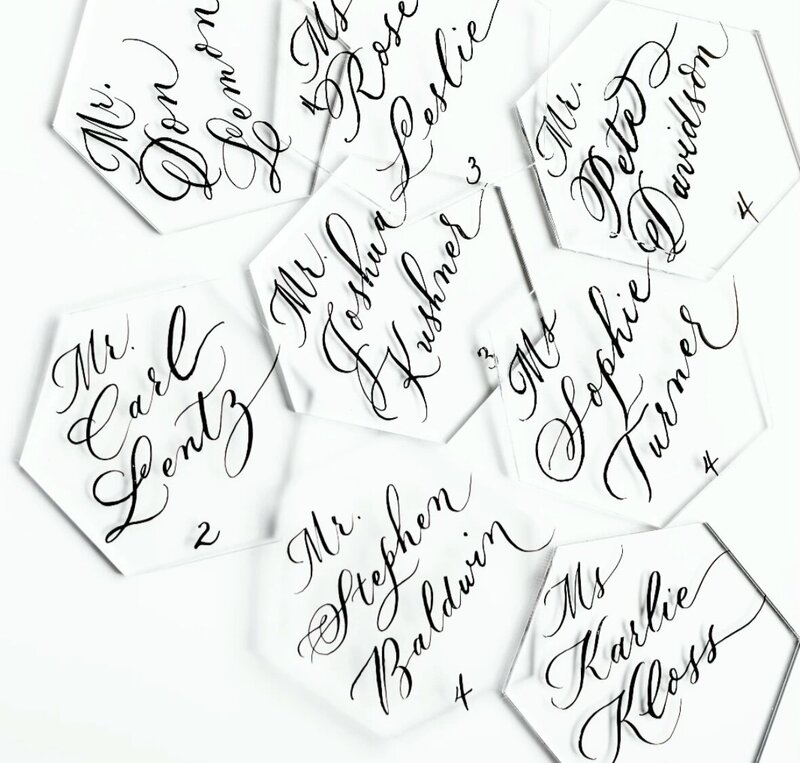 Mr.
Don
Lemon
4
Ms
Rose
Leslie
3
Mr.
Pete
Davidson
4
Mr.
Carl
Lentz
2
Mr.
Joshua
Kushner
3
Ms
Sophie
Turner
4
Mr.
Stephen
Baldwin
4
Ms
Karlie
Kloss